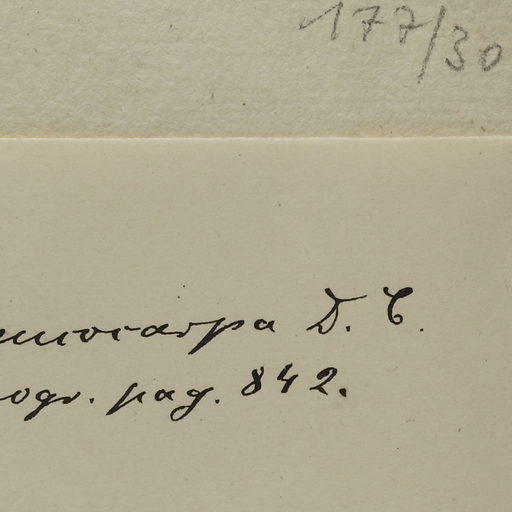 177/30
nnocarpa D. C.
ogr. pag. 842.